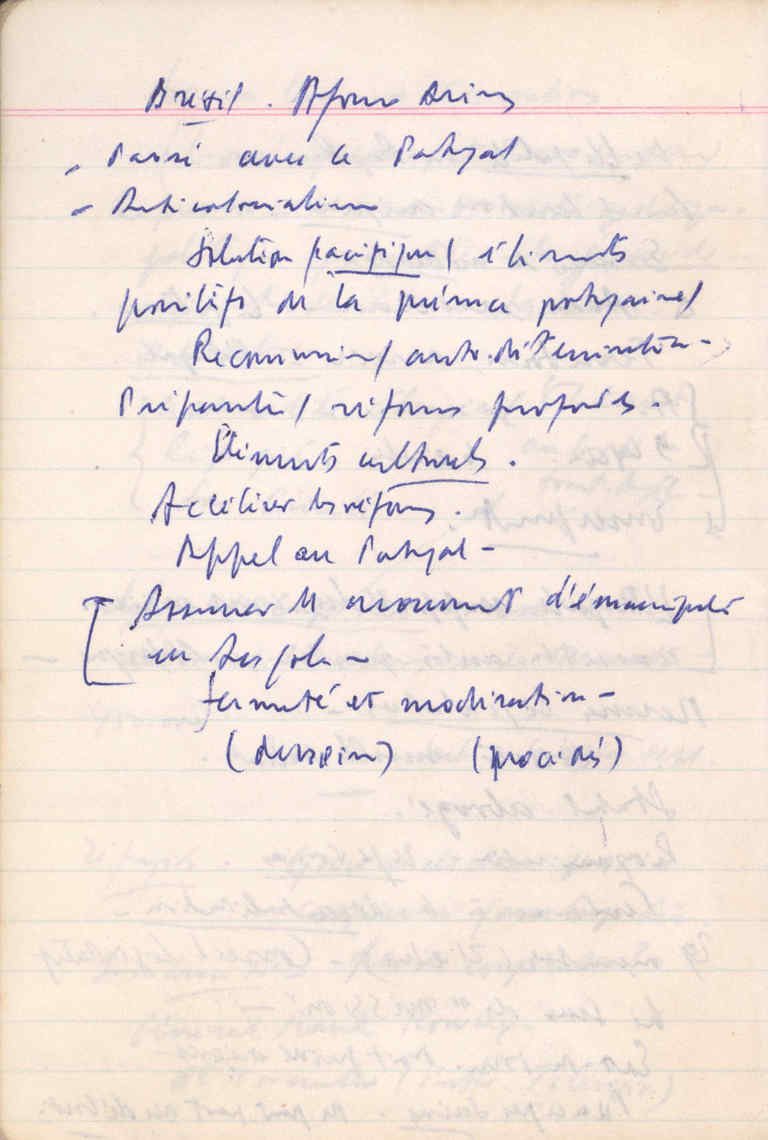 Brésil. Afonso Arinos
- Passé avec le Portugal
- Anticolonialisme
Solution pacifique / éléments
positifs de la présence portugaise /
Reconnaisse / auto-détermination -
Préparation / réformes profondes.
Éléments culturels.
Accélérer les réformes.
Appel au Portugal -
Assumer le mouvement d'émancipation
en Angola -
fermeté et modération -
(dessein) (procédés)